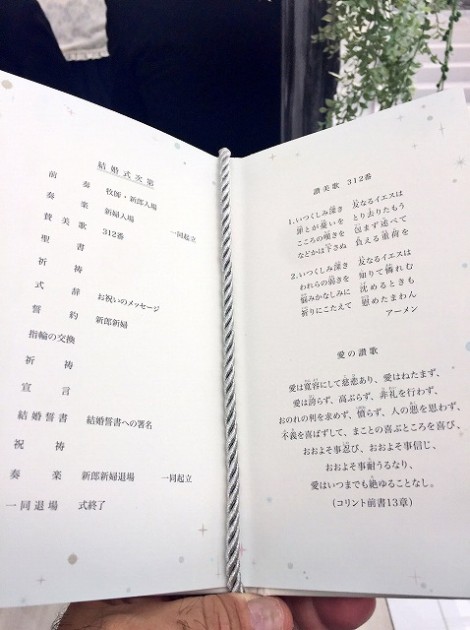 結婚式次第
前奏 牧師・新郎入場
奏楽 新婦入場
賛美歌 312番 一同起立
聖書
祈祷
式辞 お祝いのメッセージ
誓約 新郎新婦
指輪の交換
祈祷
宣言
結婚誓書 結婚誓書への署名
祝祷
奏楽 新郎新婦退場 一同起立
一同退場 式終了
讃美歌 312番
1.いつくしみ深き 友なるイエスは
罪とが憂いを とり去りたもう
こころの嘆きを 包まず述べて
などかは下さぬ 負える重荷を
2.いつくしみ深き 友なるイエスは
われらの弱きを 知りて憐れむ
悩みかなしみに 沈めるときも
祈りにこたえて 慰めたまわん
アーメン
愛の讃歌
愛は寛容にして慈悲あり、愛はねたまず、
愛は誇らず、高ぶらず、非礼を行わず、
おのれの利を求めず、憤らず、人の悪を思わず、
不義を喜ばずして、まことの喜ぶところを喜び、
おおよそ事忍び、おおよそ事信じ、
おおよそ事耐うるなり、
愛はいつまでも絶ゆることなし。
(コリント前書13章)